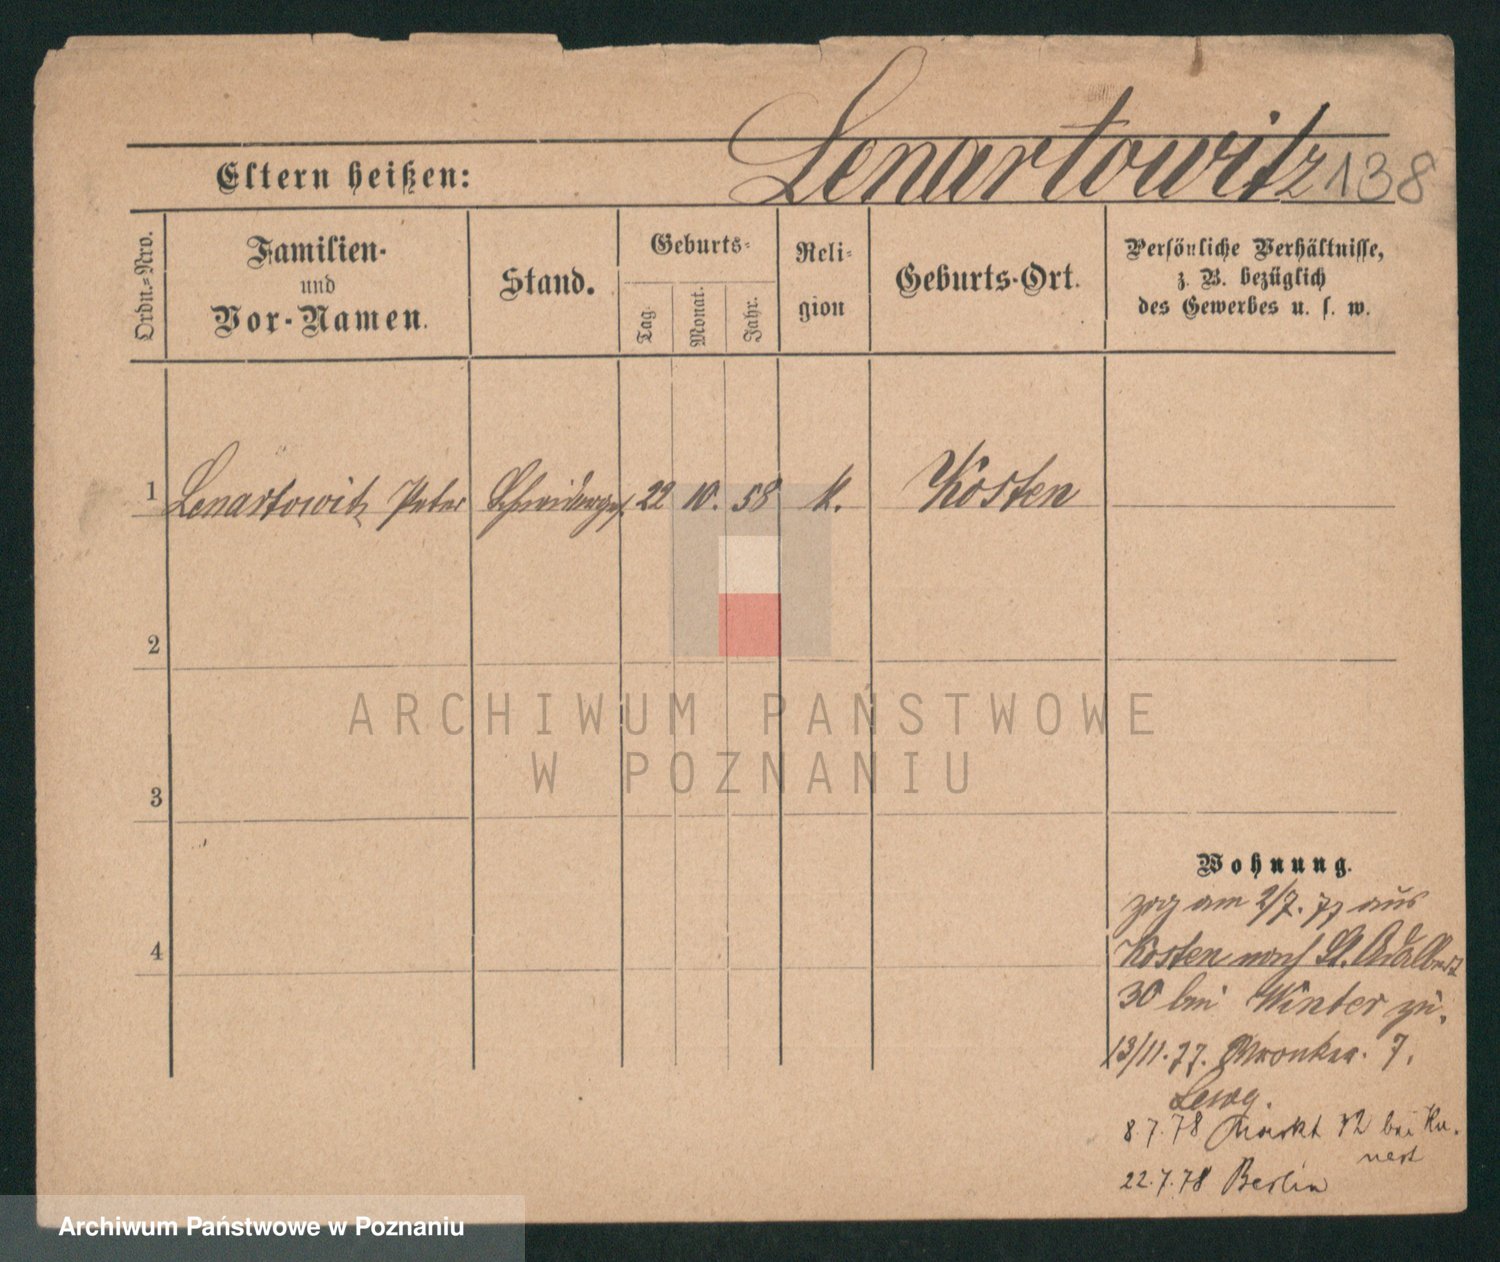 Lenartowitz 138
Eltern heißen:
Ordn.-Nro.
Familien-
und
Vor-Namen.
Stand.
Geburts-
Tag.
Monat.
Jahr.
Reli-
gion
Geburts-Ort.
Persönliche Verhältnisse,
z. B. bezüglich
des Gewerbes u. s. w.
1 Lenartowitz Peter Schneiderges. 22 10. 58 k. Kosten
2
3
4
Wohnung.
zog am 2/7. 77 aus
Kosten nach St. Adalbert
30 bei Winter zu.
13/11. 77. Wronker. 7.
8.7.78 Markt 92 bei
22.7.78 Berlin
ARCHIWUM PAŃSTWOWE
W POZNANIU
Archiwum Państwowe w Poznaniu